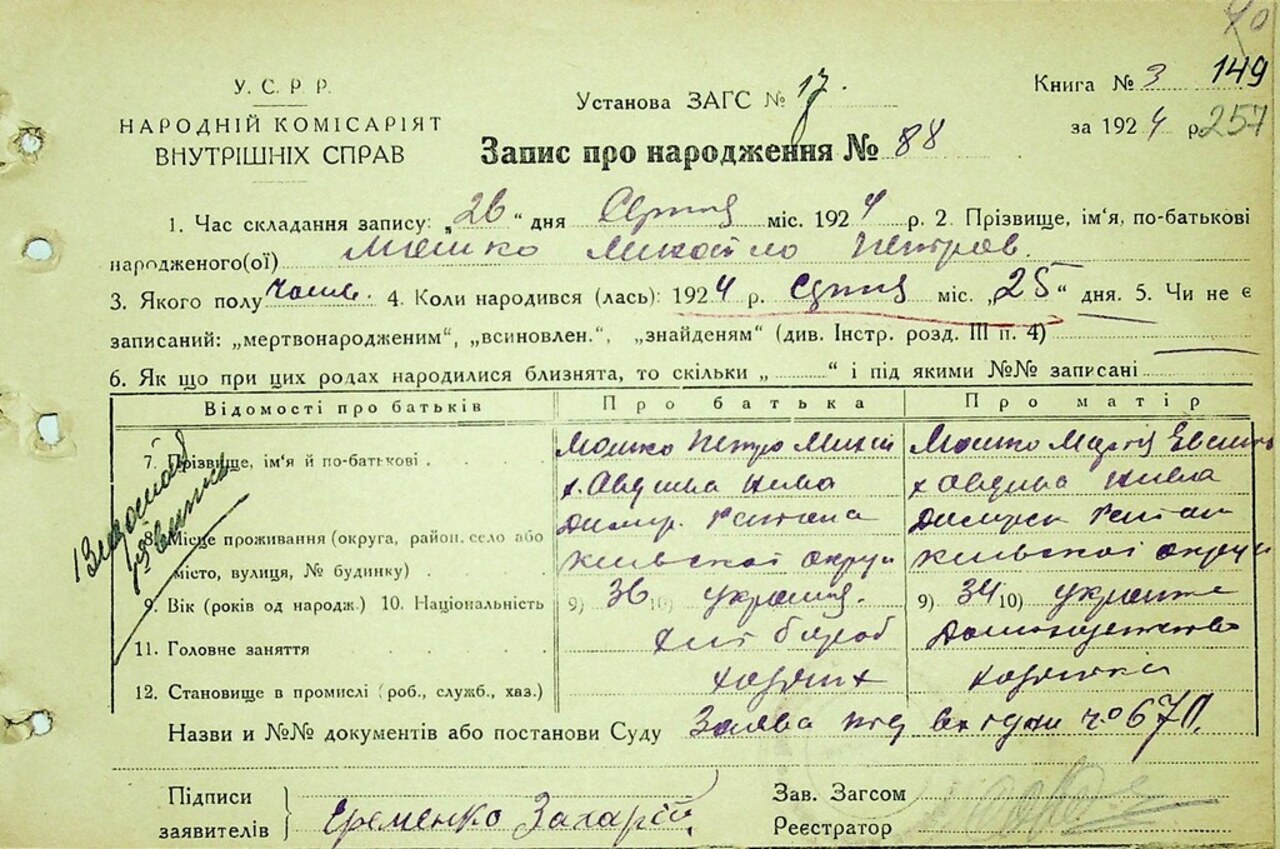 40
У. С. Р. Р.
НАРОДНІЙ КОМІСАРІЯТ
ВНУТРІШНІХ СПРАВ
Установа ЗАГС № 17.
Книга № 3 149
за 1924 р. 257
Запис про народження № 88
1. Час складання запису: „26“ дня Серпня міс. 1924 р. 2. Прізвище, ім'я, по-батькові
народженого(ої) Мошко Михайло Петров.
3. Якого полу 4. Коли народився (лась): 1924 р. Серпня міс. „25“ дня. 5. Чи не є
записаний: „мертвонародженим“, „всиновлен.“, „знайденям“ (див. Інстр. розд. III п. 4)
6. Як що при цих родах народилися близнята, то скільки „ “ і під якими №№ записані
Відомості про батьків Про батька Про матір
7. Прізвище, ім'я й по-батькові Мошко Петро Мошко Марія
8. Місце проживання (округа, район, село або
місто, вулиця, № будинку) Київської округи Київської округи
9. Вік (років од народж.) 10. Національність 9) 36 10) 9) 34 10)
11. Головне заняття хлібороб
12. Становище в промислі (роб., служб., хаз.) хазяїн хазяйка
Назви и №№ документів або постанови Суду Заява під
Підписи
заявителів Єременко Захарій
Зав. Загсом
Реєстратор